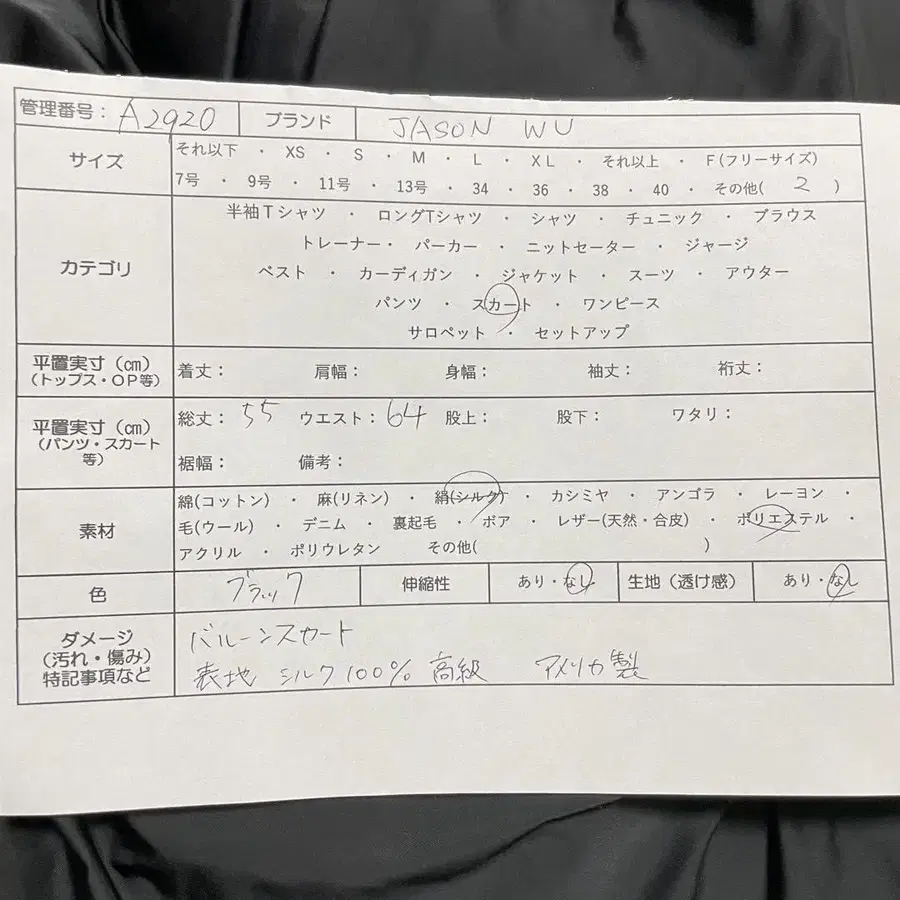 管理番号： A2920 ブランド JASON WU
サイズ それ以下 ・ XS ・ S ・ M ・ L ・ XL ・ それ以上 ・ F(フリーサイズ)
7号 ・ 9号 ・ 11号 ・ 13号 ・ 34 ・ 36 ・ 38 ・ 40 ・ その他( 2 )
カテゴリ
半袖Tシャツ ・ ロングTシャツ ・ シャツ ・ チュニック ・ ブラウス
トレーナー・ パーカー ・ ニットセーター ・ ジャージ
ベスト ・ カーディガン ・ ジャケット ・ スーツ ・ アウター
パンツ ・ スカート ・ ワンピース
サロペット ・ セットアップ
平置実寸（㎝）
（トップス・OP等）
着丈： 肩幅： 身幅： 袖丈： 裄丈：
平置実寸（㎝）
（パンツ・スカート
等）
総丈： 55 ウエスト： 64 股上： 股下： ワタリ：
裾幅： 備考：
素材
綿(コットン) ・ 麻(リネン) ・ 絹(シルク) ・ カシミヤ ・ アンゴラ ・ レーヨン ・
毛(ウール) ・ デニム ・ 裏起毛 ・ ボア ・ レザー(天然・合皮) ・ ポリエステル ・
アクリル ・ ポリウレタン その他( )
色 ブラック 伸縮性 あり・なし 生地（透け感） あり・なし
ダメージ
（汚れ・傷み）
特記事項など
バルーンスカート
表地 シルク100% 高級 アメリカ製